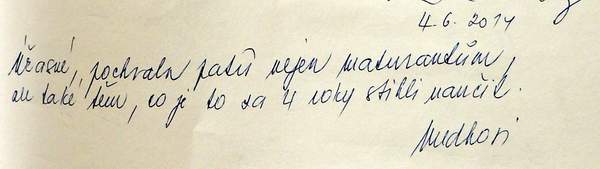 4.6. 2014
Úžasné, pochvala patří nejen maturantům,
ale také těm, co je to za 4 roky stihli naučit.